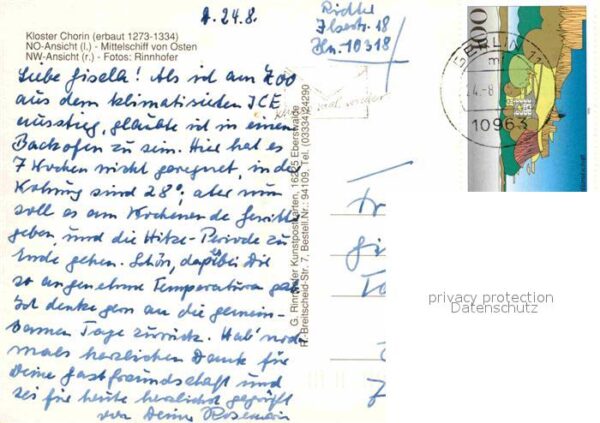 A. 24.8.
Kloster Chorin (erbaut 1273-1334)
NO-Ansicht (l.) - Mittelschiff von Osten
NW-Ansicht (r.) - Fotos: Rinnhofer
Liebe Gisella! Als ich am Zoo
aus dem klimatisierten ICE
ausstieg, glaubte ich in einen
Backofen zu sein. Hier hat es
7 Wochen nicht geregnet, in der
Wohnung sind 28°, aber nun
soll es am Wochenende Gewitter
geben, und die Hitze-Periode zu
Ende gehen. Schön, daß bei Dir
so angenehme Temperaturen
Ich denke gern an die gemein-
samen Tage zurück. Hab' noch
mals herzlichen Dank für
Deine Gastfreundschaft und
sei für heute herzlichst gegrüßt
von Deiner Rosemarie
G. Rinnhofer Kunstpostkarten, 16225 Eberswalde
R.-Breitscheid-Str. 7, Bestell.Nr.: 94109, Tel. (03334)24290
Richter
Ilsestr. 18
Bln. 10318
100
BERLIN 11
10963
privacy protection
Datenschutz